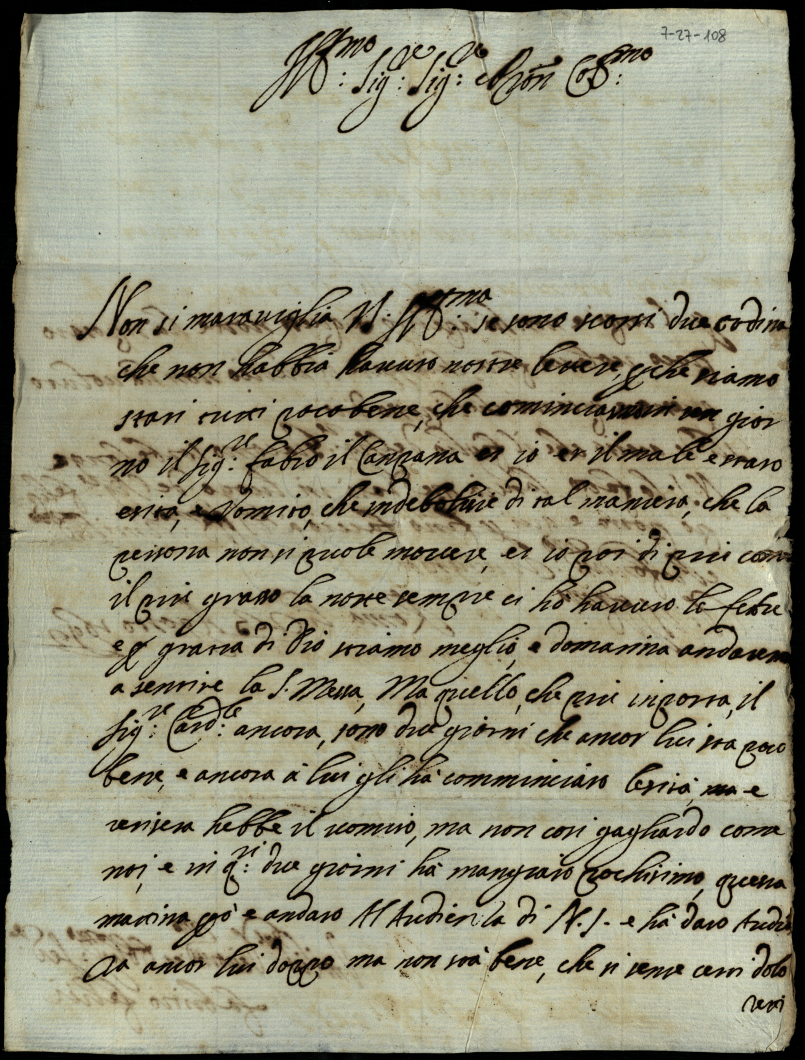 7-27-108
Ill:mo Sig:re Sig:re e Pron Col:mo
Non si maraviglia V. Ill:ma se sono scorsi due
che non habbia havuto nostre lettere, perche siamo
stati tutti poco bene, che cominciammi un gior
no il Sig:re Fabio il Canzana et io et il male e stato
e Vomito, che indebolisce di tal maniera, che la
persona non si puole movere, et io poi di piu
il piu grasso la notte sempre ci ho havuto la febre
e per gratia di Dio stiamo meglio, e domattina andarem
a sentire la S. Messa, Ma quello, che piu inporta, il
Sig:re Card:le ancora, sono due giorni che ancor lui sta poco
bene, e ancora à lui gli hà comminciato e
hebbe il vomito, ma non cosi gagliardo come
noi, e in q:ti due giorni hà mangiato pochissimo, questa
mattina però e andato Al Audienza di N. S. e hà dato Audi
za ancor lui doppo ma non stà bene, che si sente certi dolo
reri